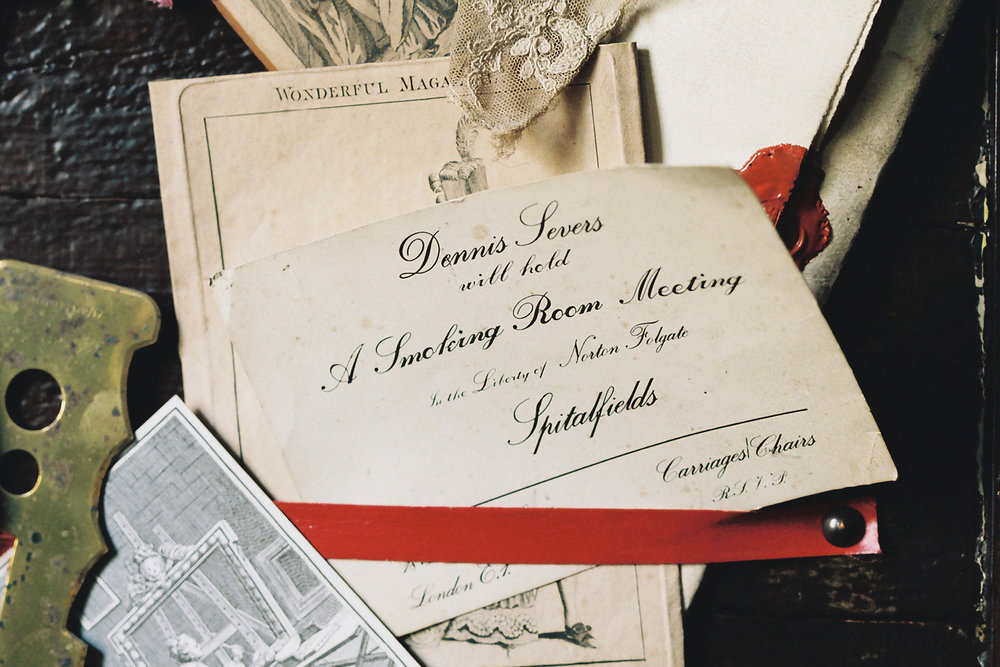 WONDERFUL MAGA
Dennis Severs
will hold
A Smoking Room Meeting
In the Liberty of Norton Folgate
Spitalfields
Carriages/Chairs
R.S.V.P.
London E.1.